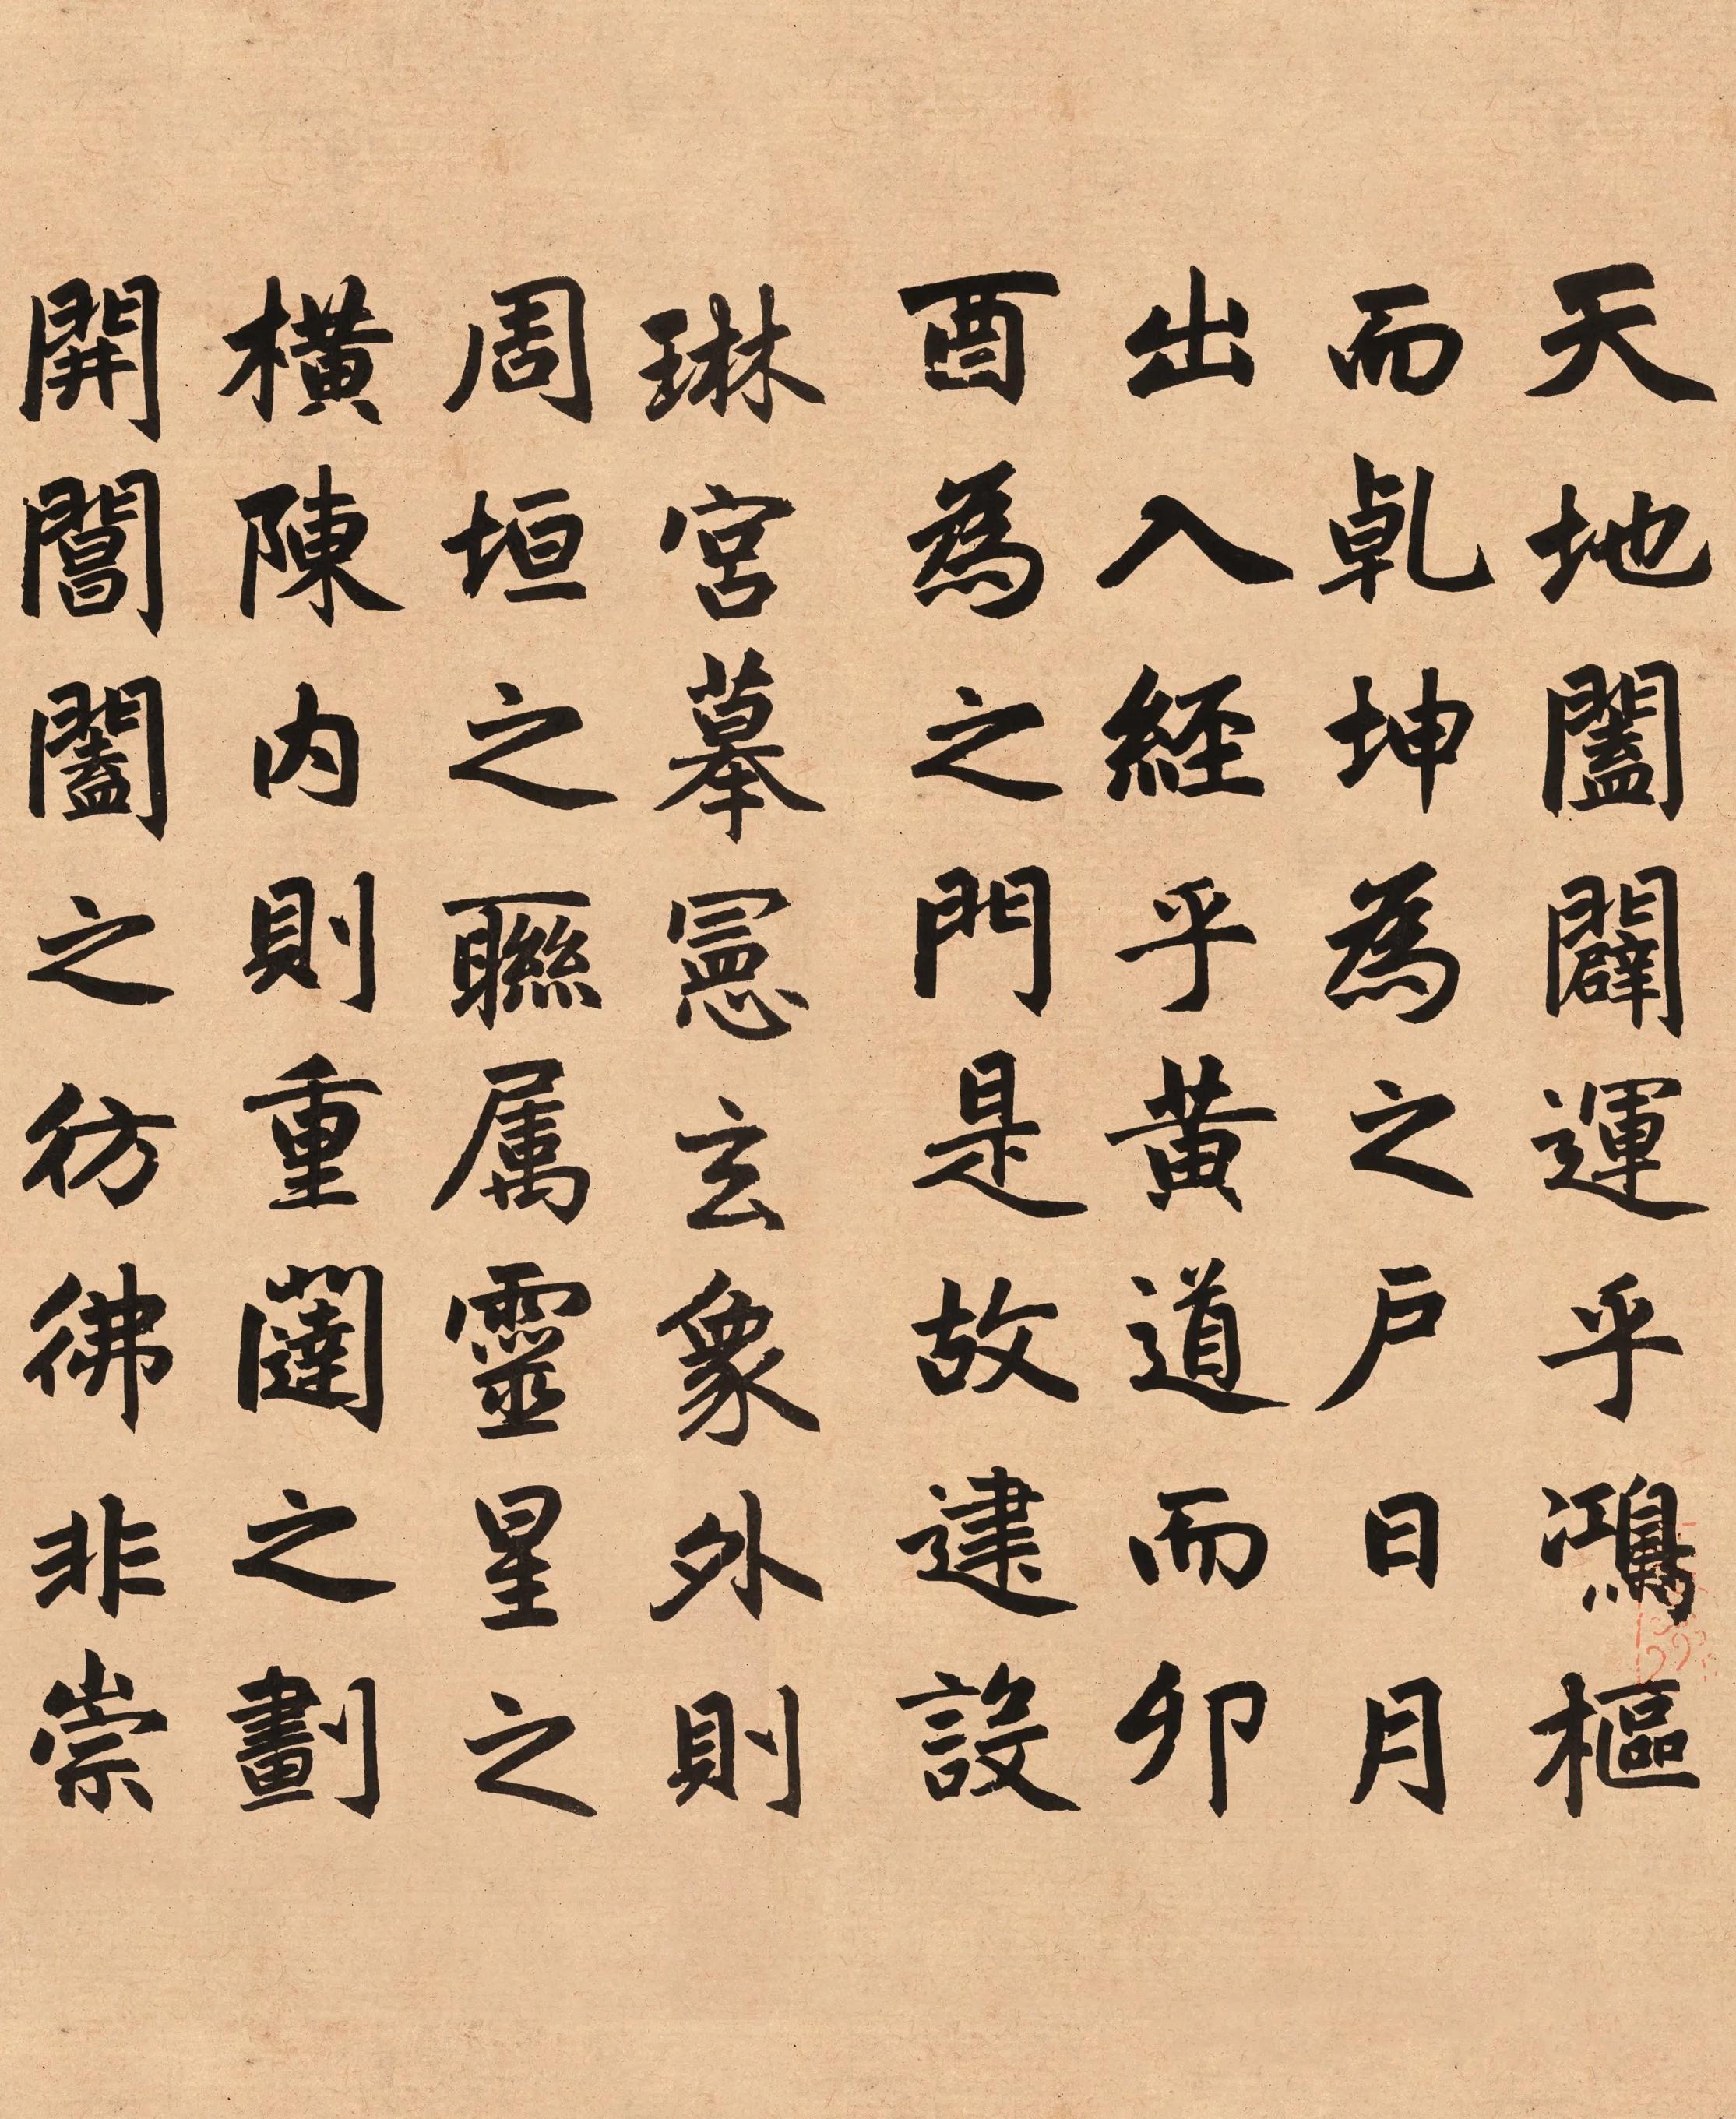 天地闔闢運乎鴻樞
而乹坤為之户日月
出入經乎黄道而卯
酉為之門是故建設
琳宮摹憲玄象外則
周垣之聯属靈星之
橫陳内則重闥之劃
開閶闔之彷彿非崇